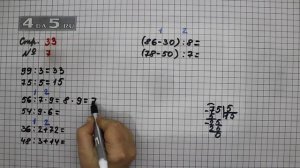 4DA5.RU
Стр. 39
№ 7
99:3=33
75:5=15
1 2
56:7·9=8·9=7
54:9·6=
1 2
36:2+72=
48:3+44=
1 2
(86-30):8=
(78-50):7=
75 5
5 15
25
25
0